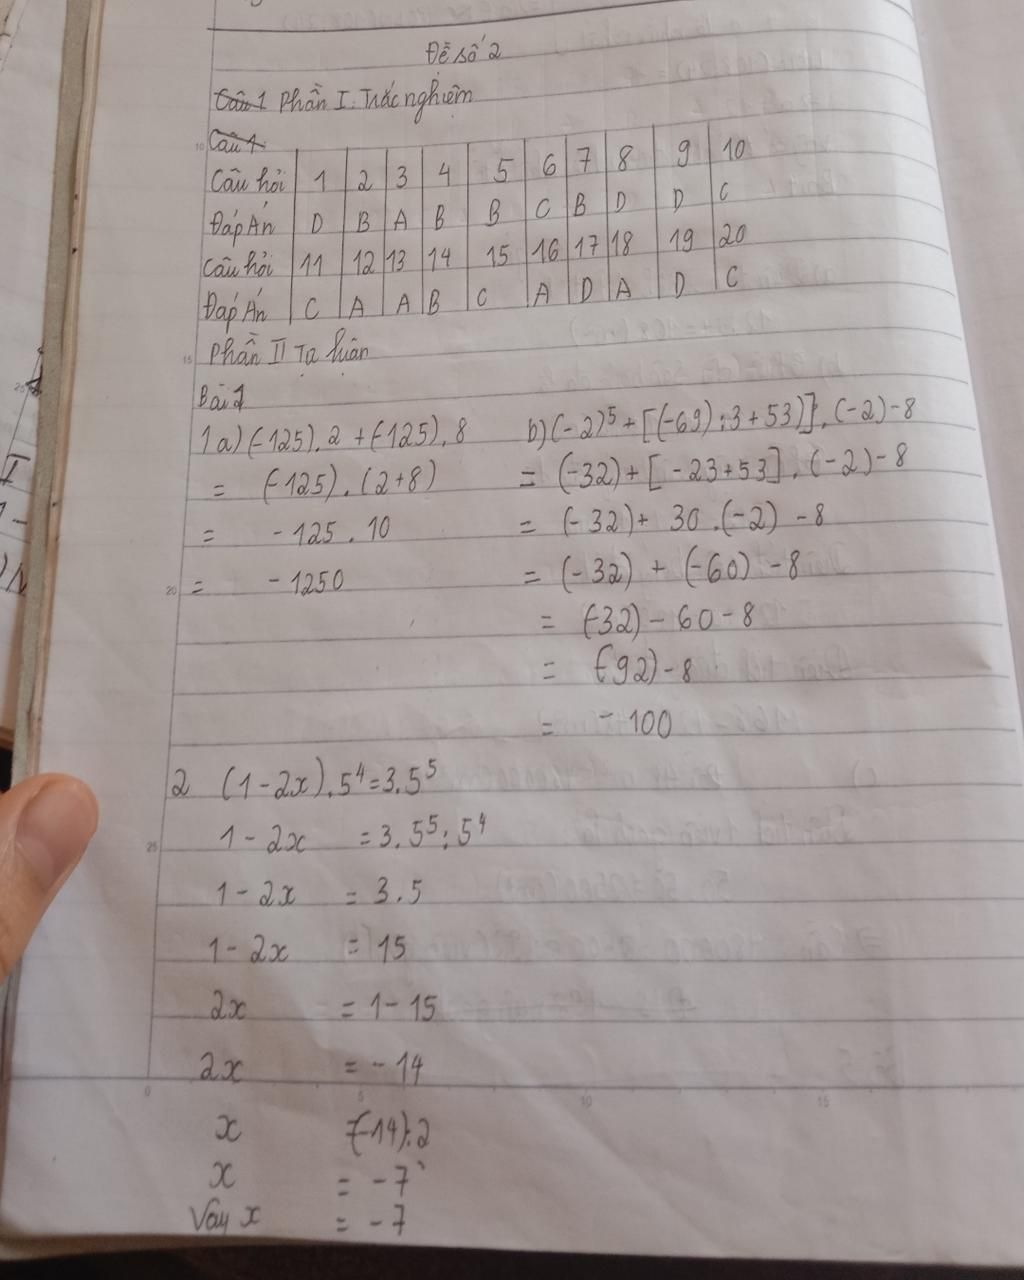 Đề số 2
Câu 1 Phần I. Trắc nghiệm
Câu 1
Câu hỏi 1 2 3 4 5 6 7 8 9 10
Đáp Án D B A B B C B D D C
Câu hỏi 11 12 13 14 15 16 17 18 19 20
Đáp Án C A A B C A D A D C
Phần II Tự luận
Bài 1
1 a) (-125).2 + (-125).8
= (-125).(2+8)
= -125.10
= -1250
b) (-2)⁵ + [(-69):3+53)].(-2)-8
= (-32)+[-23+53].(-2)-8
= (-32)+ 30.(-2) -8
= (-32) + (-60) -8
= (-32) - 60 -8
= (-92) -8
= -100
2 (1-2x).5⁴=3.5⁵
1-2x = 3.5⁵:5⁴
1-2x = 3.5
1-2x = 15
2x = 1-15
2x = -14
x =(-14):2
x = -7
Vậy x = -7